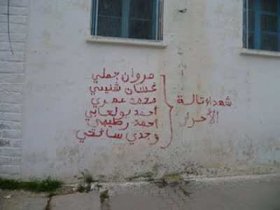 مروان جملي
غسان شنيتي
محمد عمري
أحمد بولعابي
أحمد رطيبي
وجدي سائحي
شهداء تالة
الأحرار